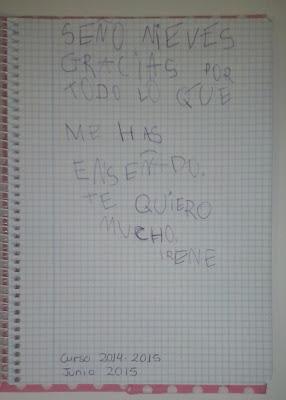 SEÑO NIEVES
GRACIAS POR
TODO LO QUE
ME HAS
ENSEÑADO.
TE QUIERO
MUCHO.
IRENE
Curso 2014-2015
Junio 2015